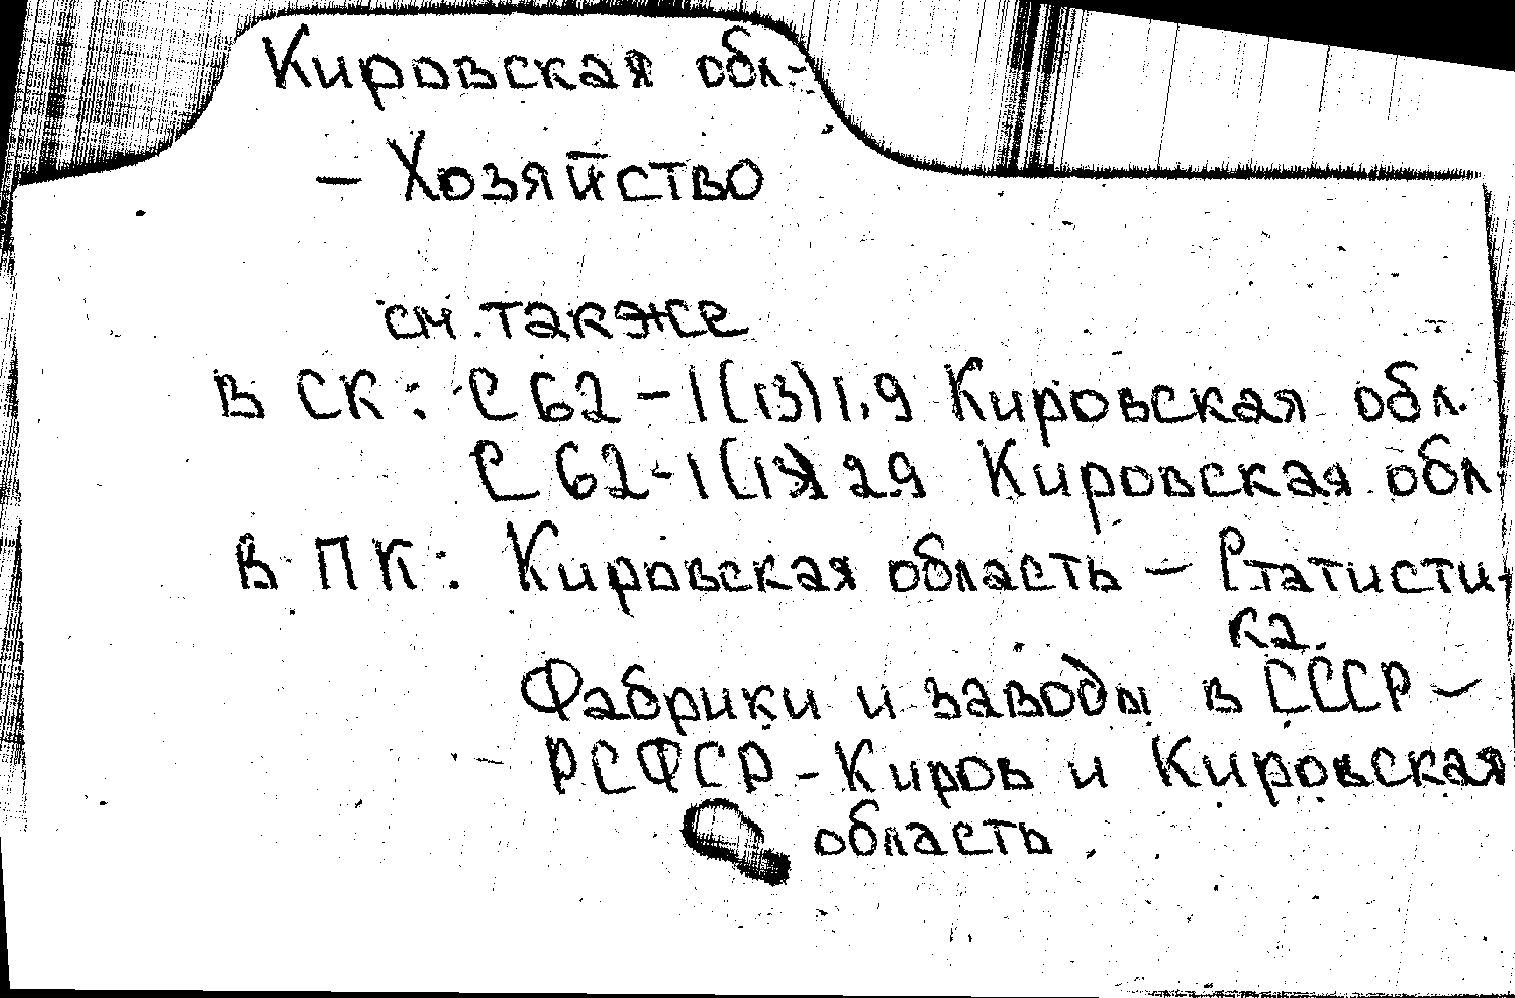 Кировская обл.
– Хозяйство
см. также
в СК: С 62–1(13)1.9 Кировская обл.
С 62-1(13)29 Кировская обл.
в ПК: Кировская область – Статисти-
ка.
Фабрики и заводы в СССР –
РСФСР – Киров и Кировская
область.